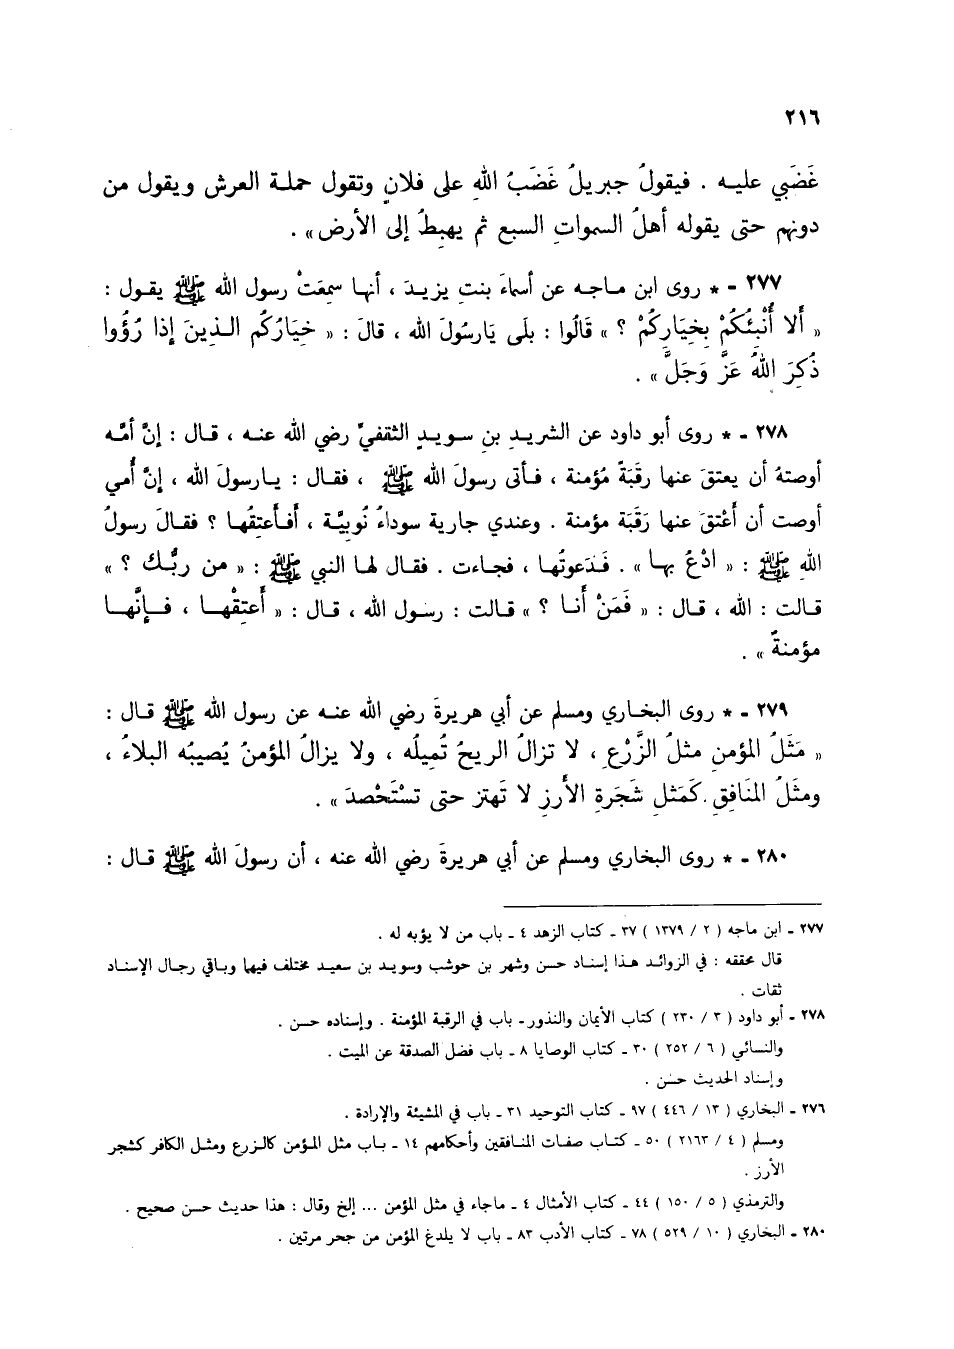 ٢١٦
غَضَبي عليـه . فيقولُ جبريلُ غَضَبُ اللهِ على فلانٍ وتقول حملـة العرش ويقول من
دونهم حتى يقوله أهلُ السمواتِ السبع ثم يهبِطُ إلى الأرض» .
٢٧٧ - * روى ابن مـاجـه عن أسماءَ بنتِ يزيـدَ ، أنهـا سمِعَتْ رسول الله ﷺ يقول :
« أَلا أُنْبِئُكُمْ بِخِيَارِكُمْ ؟ » قَالُوا : بلَى يَارسُولَ الله ، قالَ : « خيَارُكُم الـذينَ إذا رُؤُوا
ذُكِرَ اللهُ عَزَّ وَجَلَّ » .
٢٧٨ - * روى أبو داود عن الشريـدِ بنِ سـويـدٍ الثقفيِّ رضي الله عنـه ، قـال : إنَّ أمَّـه
أوصتهُ أن يعتقَ عنها رقبَةً مُؤمنة ، فـأتى رسولَ الله ﷺ ، فقـال : يـارسولَ الله ، إنَّ أُمي
أوصت أن أَعْتقَ عنها رَقَبَة مؤمنة . وعندي جارية سوداءُ نُوبيَّـة ، أَفـأعتِقُهـا ؟ فقـالَ رسولُ
اللهِ ﷺ : « ادْعُ بهـا » . فَـدَعوتُهـا ، فجـاءت . فقـال لهـا النبي ﷺ : « من ربُّـك ؟ »
قـالت : الله ، قـال : « فَمَنْ أنـا ؟ » قـالت : رسـول الله ، قـال : « أَعتِقْهـا ، فـإنَّهـا
مؤمنةٌ » .
٢٧٩ - * روى البخـاري ومسلم عن أبي هريرةَ رضي الله عنـه عن رسول الله ﷺ قـال :
« مَثَلُ المؤمنِ مثلُ الزَّرْعِ ، لا تزالُ الريحُ تُميلُه ، ولا يزالُ المؤمنُ يُصيبُه البلاءُ ،
ومثَلُ المنَافِقِ كَمَثلِ شَجَرةِ الأَرزِ لا تَهتز حتى تسْتَحْصدَ » .
٢٨٠ - * روى البخاري ومسلم عن أبي هريرةَ رضي الله عنه ، أن رسولَ الله ﷺ قـال :
٢٧٧ - ابن ماجه ( ٢ / ١٣٧٩ ) ٣٧ - كتاب الزهد ٤ - باب من لا يؤبه له .
قال محققه : في الزوائد هـذا إسنـاد حسن وشهر بن حوشب وسويـد بن سعيـد مختلف فيهما وبـاقي رجـال الإسنـاد
ثقات .
٢٧٨ - أبو داود ( ٣ / ٢٣٠ ) كتاب الأيمان والنذور - باب في الرقبة المؤمنة . وإسناده حسن .
والنسائي ( ٦ / ٢٥٢ ) ٣٠ - كتاب الوصايا ٨ - باب فضل الصدقة عن الميت .
وإسناد الحديث حسَن .
٢٧٦ - البخاري ( ١٣ / ٤٤٦ ) ٩٧ - كتاب التوحيد ٣١ - باب في المشيئة والإرادة .
ومسلم ( ٤ / ٢١٦٣ ) ٥٠ - كتـاب صفـات المنـافقين وأحكامهم ١٤ - بـاب مثل المـؤمن كالـزرع ومثـل الكافر كشجر
الأرز .
والترمذي ( ٥ / ١٥٠ ) ٤٤ - كتاب الأمثال ٤ - ماجاء في مثل المؤمن ... إلخ وقال : هذا حديث حسن صحيح .
٢٨٠ - البخاري ( ١٠ / ٥٢٩ ) ٧٨ - كتاب الأدب ٨٣ - باب لا يلدغ المؤمن من جحر مرتين .